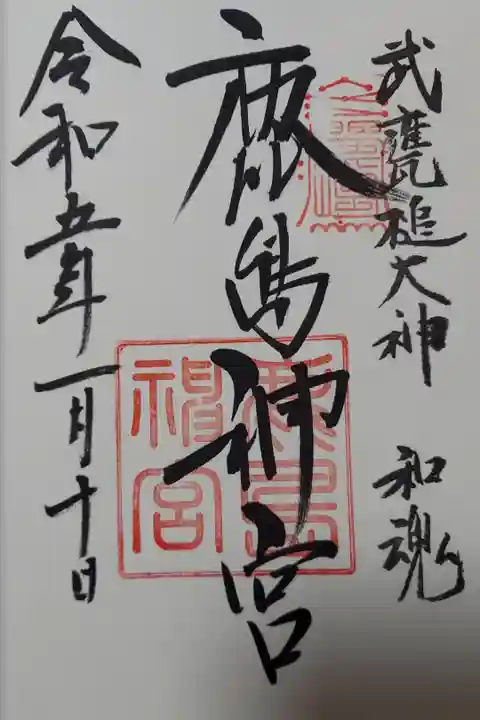 武甕槌大神 和魂
鹿島神宮
鹿島神宮
令和五年一月十日